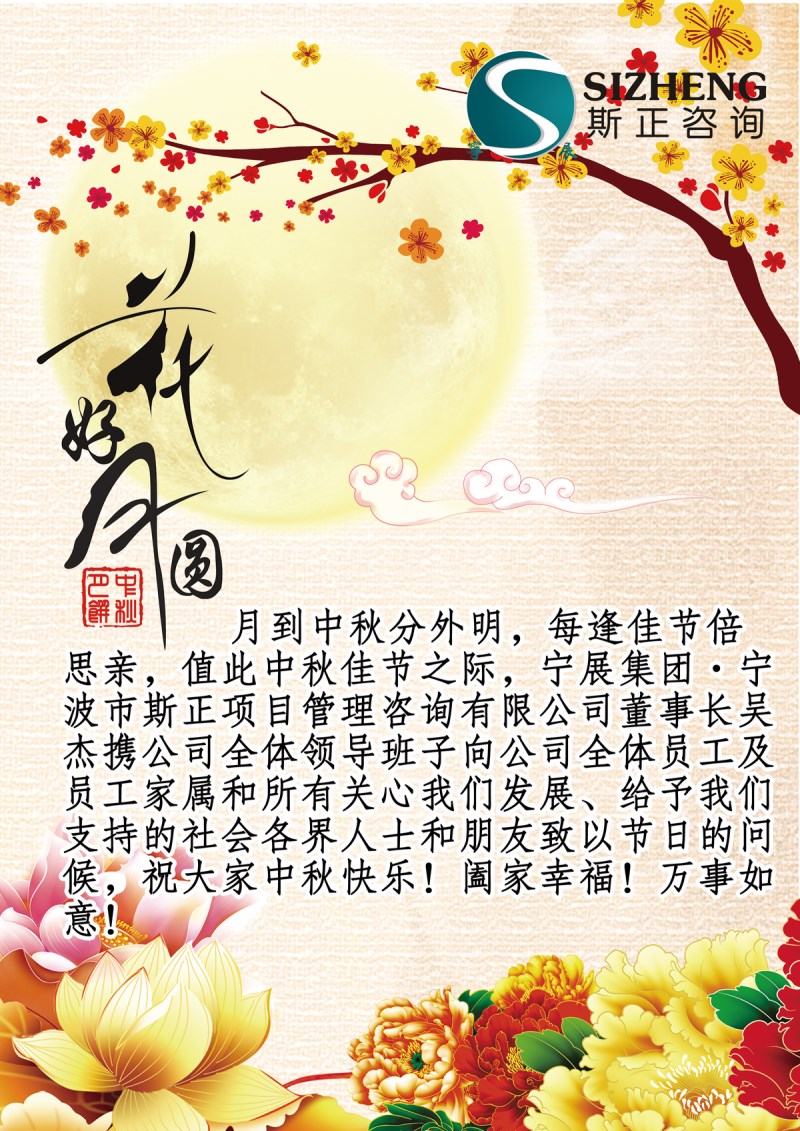 SIZHENG
斯正咨询
花好月圆
中秋
月到中秋分外明，每逢佳节倍
思亲，值此中秋佳节之际，宁展集团·宁
波市斯正项目管理咨询有限公司董事长吴
杰携公司全体领导班子向公司全体员工及
员工家属和所有关心我们发展、给予我们
支持的社会各界人士和朋友致以节日的问
候，祝大家中秋快乐！阖家幸福！万事如
意！